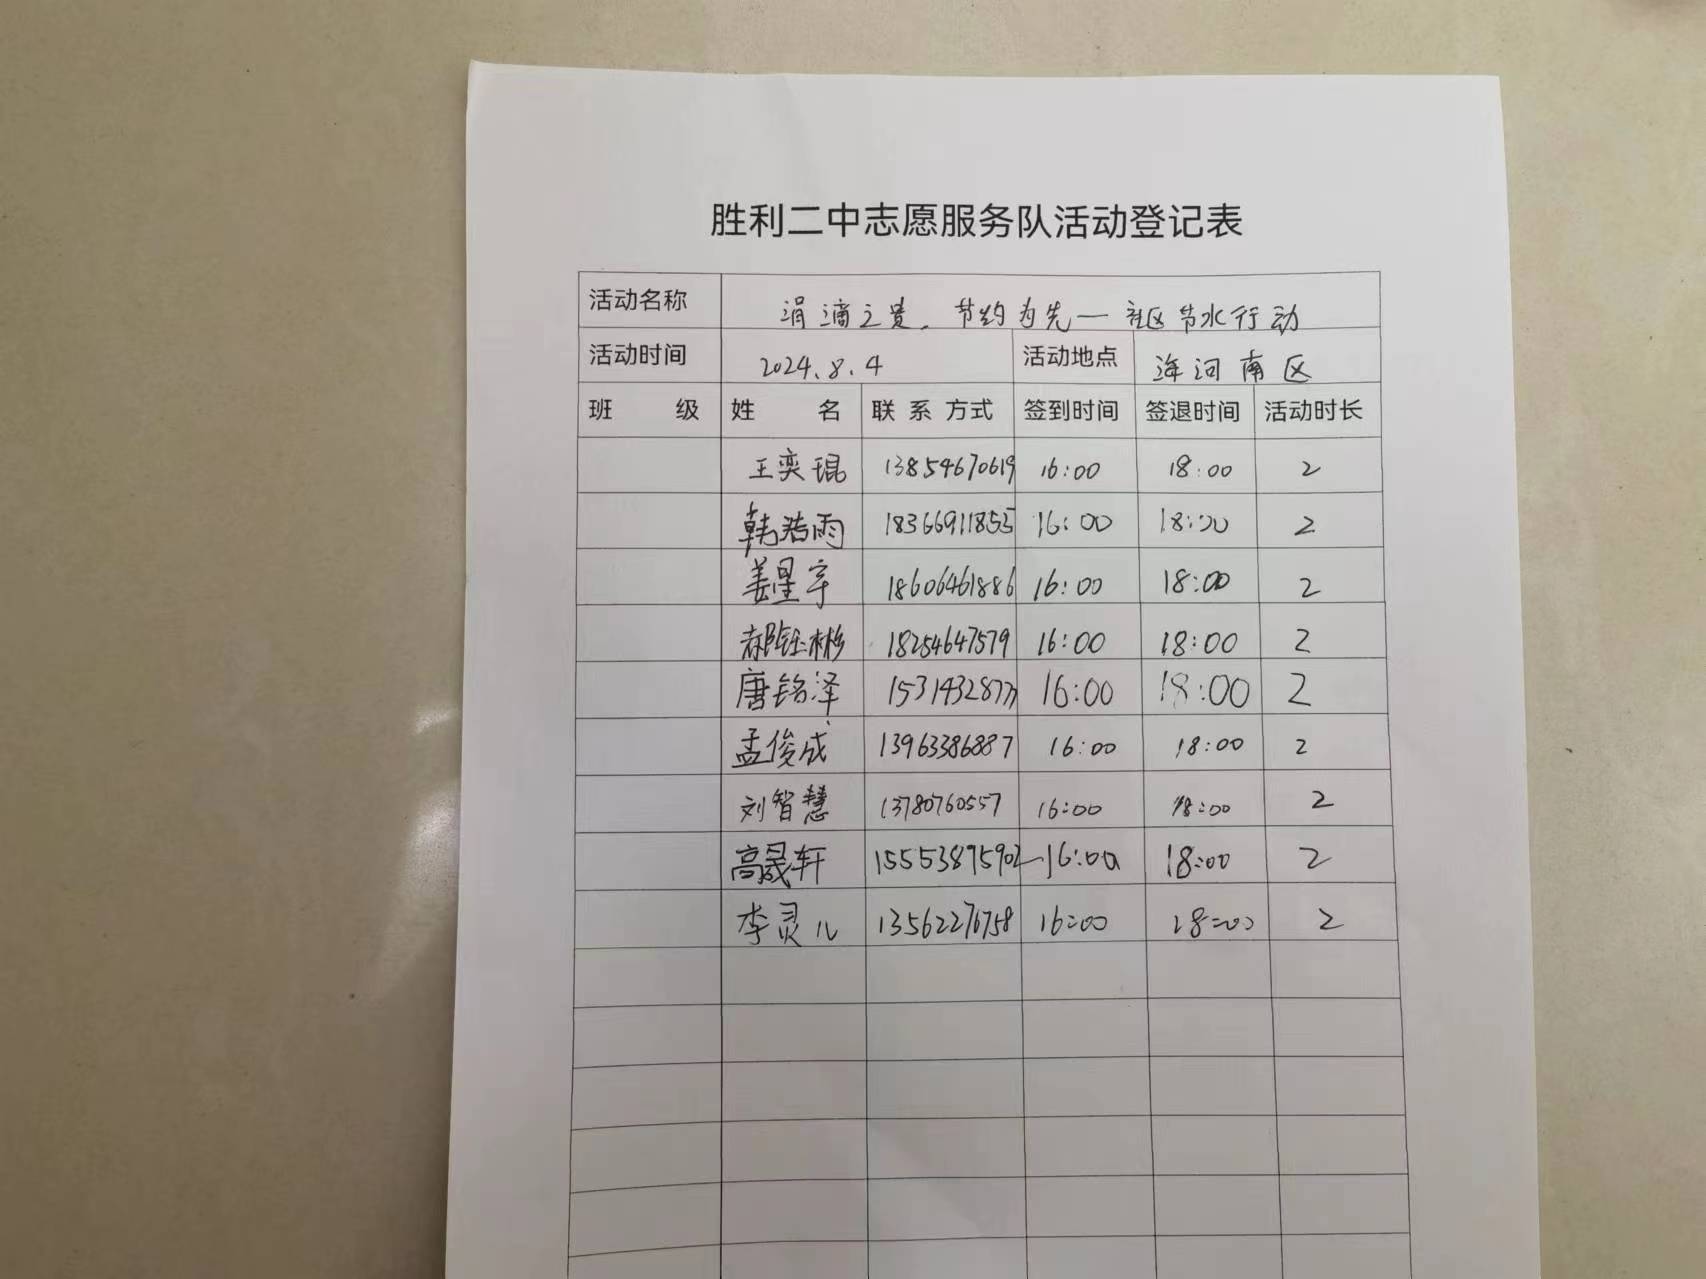 胜利二中志愿服务队活动登记表
活动名称 涓滴之贵,节约为先一社区节水行动
活动时间 2024.8.4 活动地点 海河南区
班 级 姓 名 联系方式 签到时间 签退时间 活动时长
王奕琨 13854670619 16:00 18:00 2
韩浩雨 18366911855 16:00 18:00 2
姜星宇 18606461886 16:00 18:00 2
郝钰彬 18254647579 16:00 18:00 2
唐铭泽 15314328777 16:00 18:00 2
孟俊成 13963386887 16:00 18:00 2
刘智慧 13780760557 16:00 18:00 2
高晟轩 15553875902 16:00 18:00 2
李灵儿 13562276758 16:00 18:00 2